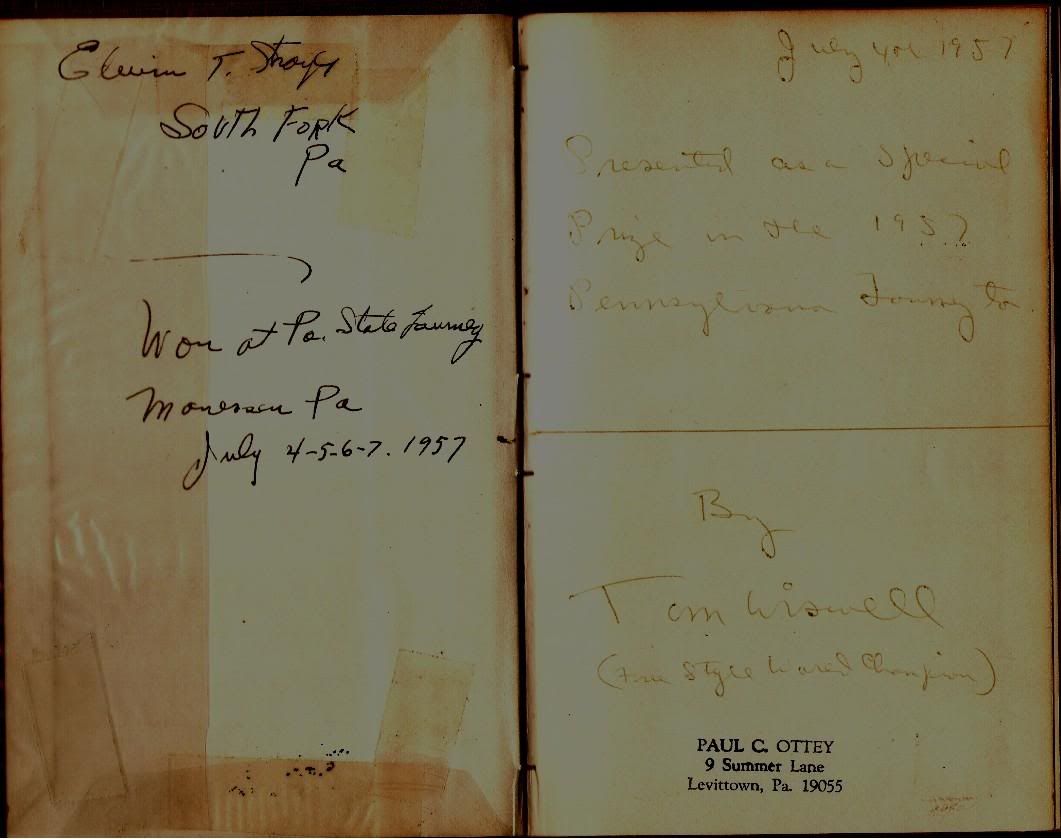 Elwin T.
South Fork
Pa
Won at Pa. State Tourney
Monessen Pa
July 4-5-6-7. 1957
July 4th 1957
Presented as a Special
Prize in the 1957
Pennsylvania Tourney
By
Tom Wiswell
(Free Style World Champion)
PAUL C. OTTEY
9 Summer Lane
Levittown, Pa. 19055